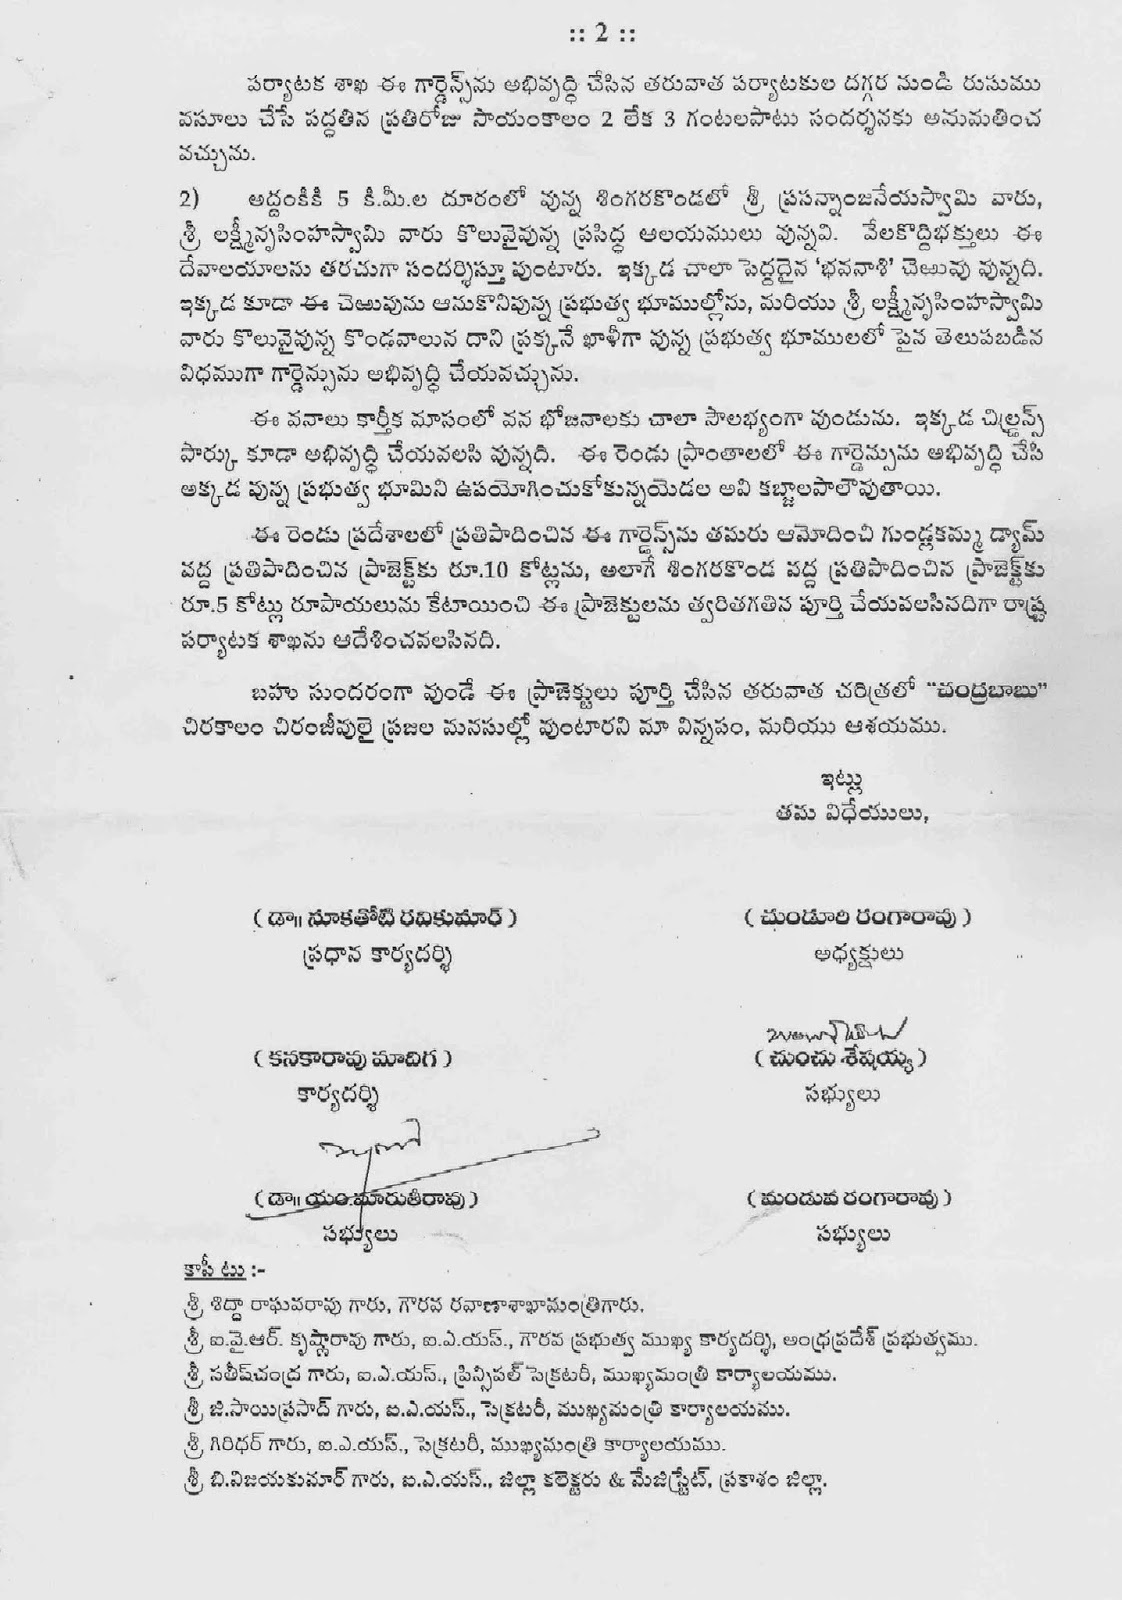 :: 2 ::
పర్యాటక శాఖ ఈ గార్డెన్స్‌ను అభివృద్ధి చేసిన తరువాత పర్యాటకుల దగ్గర నుండి రుసుము
వసూలు చేసే పద్ధతిన ప్రతిరోజు సాయంకాలం 2 లేక 3 గంటలపాటు సందర్శనకు అనుమతించ
వచ్చును.
2) అద్దంకికి 5 కి.మీ.ల దూరంలో వున్న శింగరకొండలో శ్రీ ప్రసన్నాంజనేయస్వామి వారు,
శ్రీ లక్ష్మీనృసింహస్వామి వారు కొలువైవున్న ప్రసిద్ధ ఆలయములు వున్నవి. వేలకొద్దిభక్తులు ఈ
దేవాలయాలను తరచుగా సందర్శిస్తూ వుంటారు. ఇక్కడ చాలా పెద్దదైన ‘భవనాశి’ చెఱువు వున్నది.
ఇక్కడ కూడా ఈ చెఱువును ఆనుకొనివున్న ప్రభుత్వ భూముల్లోను, మరియు శ్రీ లక్ష్మీనృసింహస్వామి
వారు కొలువైవున్న కొండవాలున దాని ప్రక్కనే ఖాళీగా వున్న ప్రభుత్వ భూములలో పైన తెలుపబడిన
విధముగా గార్డెన్సును అభివృద్ధి చేయవచ్చును.
ఈ వనాలు కార్తీక మాసంలో వన భోజనాలకు చాలా సౌలభ్యంగా వుండును. ఇక్కడ చిల్డ్రన్స్
పార్కు కూడా అభివృద్ధి చేయవలసి వున్నది. ఈ రెండు ప్రాంతాలలో ఈ గార్డెన్సును అభివృద్ధి చేసి
అక్కడ వున్న ప్రభుత్వ భూమిని ఉపయోగించుకోకున్నయెడల అవి కబ్జాలపాలౌవుతాయి.
ఈ రెండు ప్రదేశాలలో ప్రతిపాదించిన ఈ గార్డెన్స్‌ను తమరు ఆమోదించి గుండ్లకమ్మ డ్యామ్
వద్ద ప్రతిపాదించిన ప్రాజెక్ట్‌కు రూ.10 కోట్లను, అలాగే శింగరకొండ వద్ద ప్రతిపాదించిన ప్రాజెక్ట్‌కు
రూ.5 కోట్లు రూపాయలును కేటాయించి ఈ ప్రాజెక్టులను త్వరితగతిన పూర్తి చేయవలసినదిగా రాష్ట్ర
పర్యాటక శాఖను ఆదేశించవలసినది.
బహు సుందరంగా వుండే ఈ ప్రాజెక్టులు పూర్తి చేసిన తరువాత చరిత్రలో “చంద్రబాబు”
చిరకాలం చిరంజీవులై ప్రజల మనసుల్లో వుంటారని మా విన్నపం, మరియు ఆశయము.
ఇట్లు
తమ విధేయులు,
( డా॥ నూకతోటి రవికుమార్ ) ( చుండూరి రంగారావు )
ప్రధాన కార్యదర్శి అధ్యక్షులు
( కనకారావు మాదిగ ) ( చుంచు శేషయ్య )
కార్యదర్శి సభ్యులు
( డా॥ యం.మారుతీరావు ) ( మందువ రంగారావు )
సభ్యులు సభ్యులు
కాపీ టు :-
శ్రీ శిద్దా రాఘవరావు గారు, గౌరవ రవాణాశాఖామంత్రిగారు.
శ్రీ ఐ.వై.ఆర్. కృష్ణారావు గారు, ఐ.ఎ.యస్., గౌరవ ప్రభుత్వ ముఖ్య కార్యదర్శి, అంధ్రప్రదేశ్ ప్రభుత్వము.
శ్రీ సతీష్‌చంద్ర గారు, ఐ.ఎ.యస్., ప్రిన్సిపల్ సెక్రటరీ, ముఖ్యమంత్రి కార్యాలయము.
శ్రీ జి.సాయిప్రసాద్ గారు, ఐ.ఎ.యస్., సెక్రటరీ, ముఖ్యమంత్రి కార్యాలయము.
శ్రీ గిరిధర్ గారు, ఐ.ఎ.యస్., సెక్రటరీ, ముఖ్యమంత్రి కార్యాలయము.
శ్రీ బి.విజయకుమార్ గారు, ఐ.ఎ.యస్., జిల్లా కలెక్టరు & మేజిస్ట్రేట్, ప్రకాశం జిల్లా.